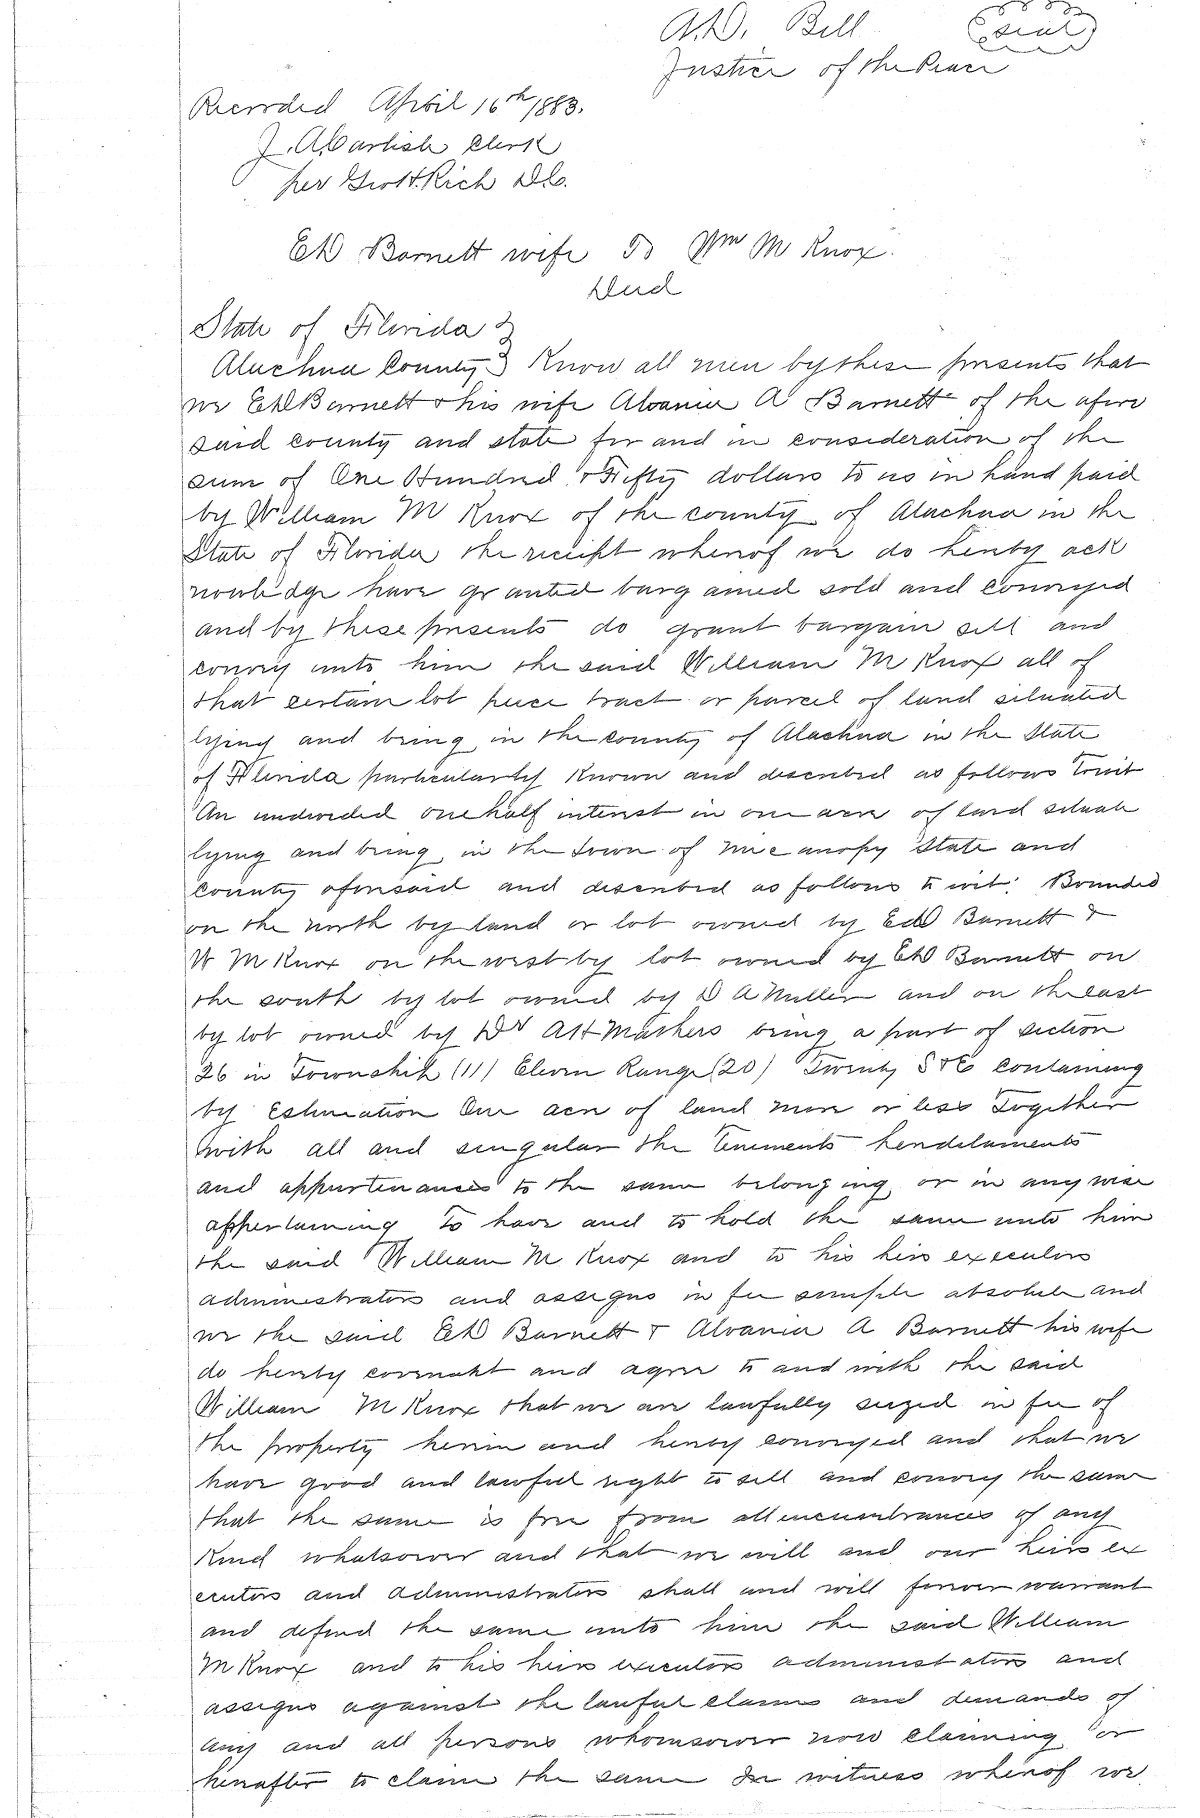 A.D. Bell (seal)
Justice of the Peace
Recorded April 16th 1883.
J. A. Carlisle Clerk
per Geo H. Rich D.C.
Ed Barnett wife To Wm M Knox.
Deed
State of Florida }
Alachua County } Know all men by these presents that
we Ed Barnett & his wife Alvania A Barnett of the afore
said county and state for and in consideration of the
sum of One Hundred & Fifty dollars to us in hand paid
by William M Knox of the county of Alachua in the
State of Florida the receipt whereof we do hereby ack
nowledge have granted bargained sold and conveyed
and by these presents do grant bargain sell and
convey unto him the said William M Knox all of
that certain lot piece tract or parcel of land situated
lying and being in the county of Alachua in the State
of Florida particularly known and described as follows towit
An undivided one half interest in one acre of land situate
lying and being in the town of Micanopy State and
County aforesaid and described as follows to wit: Bounded
on the north by land or lot owned by Ed Barnett &
W M Knox on the west by lot owned by Ed Barnett on
the south by lot owned by D A Miller and on the east
by lot owned by Dr A H Mathers being a part of section
26 in Township (11) Eleven Range (20) Twenty S & E containing
by Estimation One acre of land more or less Together
with all and singular the tenements hendilaments
and appurtenances to the same belonging or in any wise
appertaining To have and to hold the same unto him
the said William M Knox and to his heirs executors
administrators and assigns in fee simple absolute and
we the said Ed Barnett & Alvania A Barnett his wife
do hereby covenant and agree to and with the said
William M Knox that we are lawfully seized in fee of
the property herein and hereby conveyed and that we
have good and lawful right to sell and convey the same
that the same is free from all incumbrances of any
Kind whatsoever and that we will and our heirs ex
ecutors and administrators shall and will forever warrant
and defend the same unto him the said William
M Knox and to his heirs executors administators and
assigns against the lawful claims and demands of
any and all persons whomsoever now claiming or
hereafter to claim the same In witness whereof we